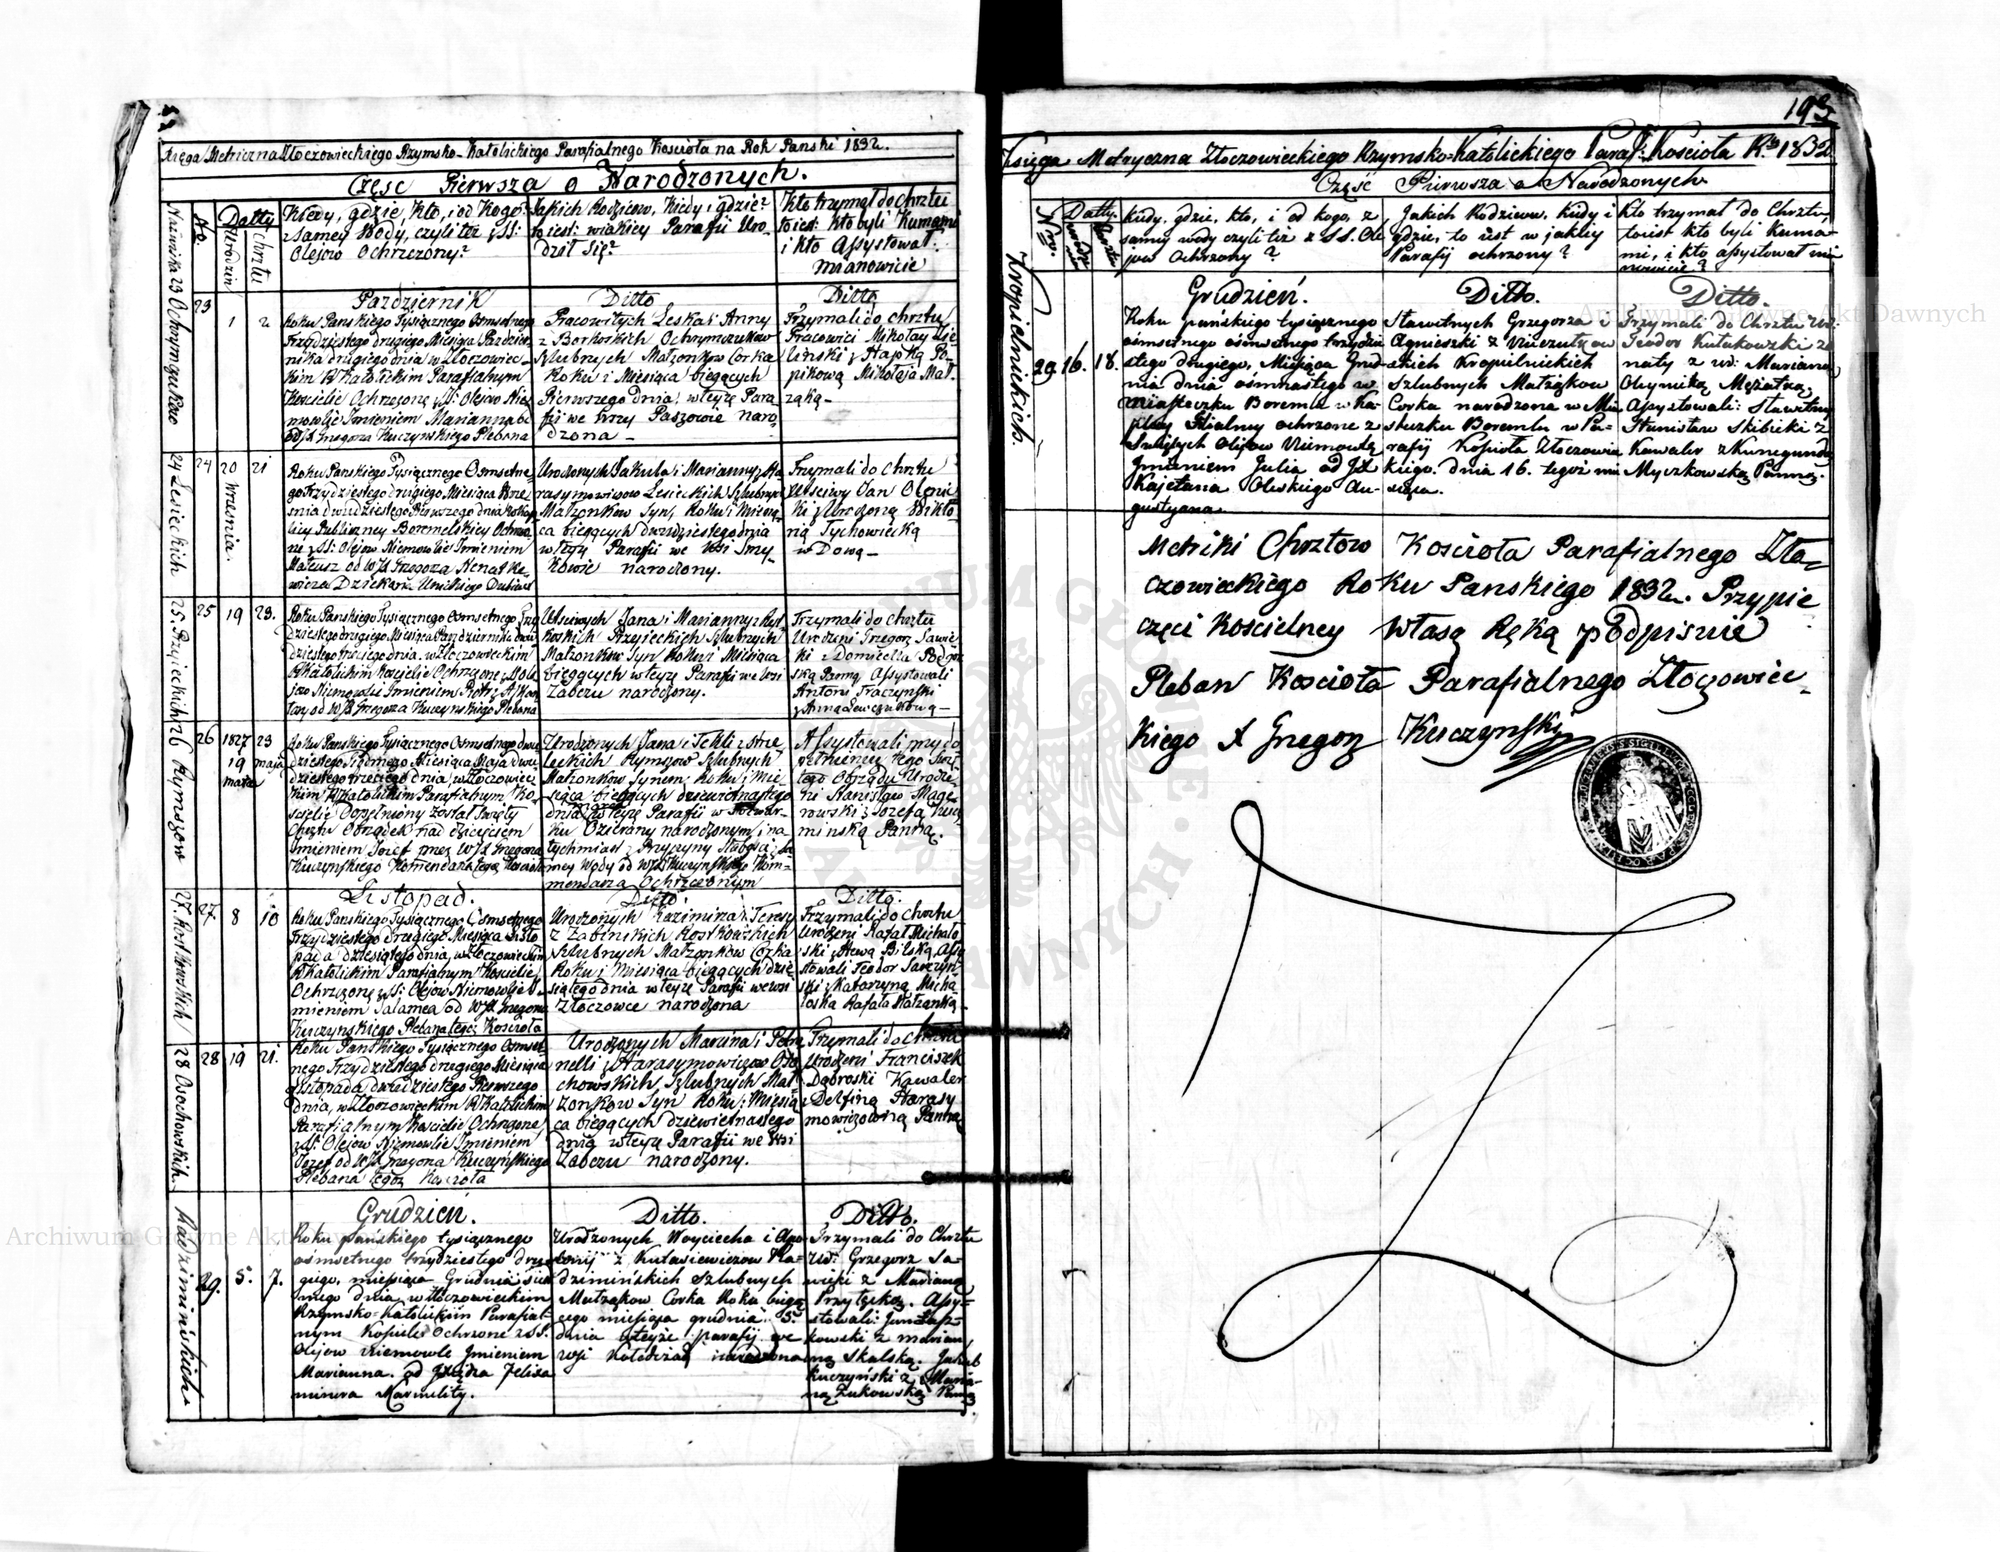 Księga Metriczna Złoczowieckiego Rzymsko-Katolickiego Parafialnego Kościoła na Rok Panski 1832.
Częsc Pierwsza o Narodzonych.
Nazwiska
No.
Datty
Urodzin
chrztu
Kiedy, gdzie, kto, i od kogo:
z samey Wody, czyli też z SS:
Olejow Ochrzczony?
Jakich Rodzicow, Kiedy i gdzie?
to iest: w iakiey Parafii Uro-
dził się?
Kto trzymał do chrztu
to iest: kto byli Kumami
i kto Assystował:
mianowicie
23 Ochrymczukow
23
1
2
Październik
Roku Panskiego Tysiącznego Osmsetnego
Trzydziestego drugiego Miesiąca Paździer-
nika drugiego dnia w Złoczowiec-
kim R Katolickim Parafialnym
Kosciele Ochrzczone z SS: Olejow Nie-
mowlę Imieniem Marianna
od WJX Grzegorza Kuczynskiego Plebana
Ditto
Pracowitych Leska i Anny
z Borkoskich Ochrymczukow
Szlubnych Małzonkow Corka
Roku i Miesiąca biegących
Pierwszego dnia w teyże Para
fii we Wsi Paszowie naro-
dzona -
Ditto
Trzymali do chrztu
Pracowici Mikołay
Mikołaja
24 Lesieckich
24
20
21
Wrzesnia.
Roku Panskiego Tysiącznego Osmsetne-
go Trzydziestego drugiego Miesiąca Wrze-
snia dwudziestego Pierwszego dnia w Kap-
licy Publiczney Boremelskiey Ochrzczo-
ne z SS: Olejow Niemowlę Imieniem
Mateusz od WJX Grzegorza
Dziekana Unickiego
Urodzonych Jakuba i Marianny z Ha-
rasymowiczow Lesieckich Szlubnych
Małzonkow Syn, Roku i Miesią-
ca biegących dwudziestego dnia
w teyże Parafii we Wsi Smy-
kowie narodzony.
Trzymali do chrztu
Uczciwy Jan
ki z Urodzoną Wikto-
rią Tychowiecką
Wdową -
25. Przysieckich
25
19
23.
Roku Panskiego Tysiącznego Osmsetnego Trzy
dziestego drugiego Miesiąca Pazdziernika dwu
dziestego trzeciego dnia, w Złoczowieckim
R Katolickim Kosciele Ochrzczone z SS Ole
jow Niemowlę Imieniem
od WJX Grzegorza Kuczynskiego Plebana
Uczciwych Jana i Marianny z
Przysieckich Szlubnych
Małzonkow Syn Roku i Miesiąca
biegących w teyże Parafii we Wsi
Zabczu narodzony.
Trzymali do chrztu
Urodzeni Grzegorz Sawic
ki z Domicellą
ską Panną Assystowali
Antoni Traczynski
z Anną
26 Rymszow
26
1827
19
marca
23
maja
Roku Panskiego Tysiącznego Osmsetnego dwu
dziestego Siodmego Miesiąca Maja dwu
dziestego trzeciego dnia, w Złoczowiec
kim R Katolickim Parafialnym Ko-
sciele Dopełniony został Swięty
Chrztu Obrządek nad dziecięciem
Imieniem Jozef przez WJX Grzegorza
Kuczynskiego Komendarza tegoż Koscioła
Urodzonych Jana i Tekli z Strze
leckich Rymszow Szlubnych
Małzonkow Synem, Roku i Mie
siąca biegących dziewiętnastego
marca
dnia w teyże Parafii w Folwar-
ku Ozierany narodzonym i na
tychmiast z Przyczyny Słabości z Sa
mey Wody od WJX Kuczynskiego Kom-
mendarza Ochrzczonym
Assystowali przy do
pełnieniu tego Swię
tego Obrzędu Urodze
ni Stanisław Mage
nowski z Jozefą Kucz
minską Panną.
27. Rostkowskich
27.
8
10
Listopad.
Roku Panskiego Tysiącznego Osmsetnego
Trzydziestego drugiego Miesiąca Listo
pada dziesiątego dnia, w Złoczowieckim
R Katolickim Parafialnym Kosciele,
Ochrzczone z SS: Olejow Niemowlę I-
mieniem Salomea od WJX Grzegorza
Kuczynskiego Plebana tegoż Kosciola
Ditto
Urodzonych Kazimirza i Teresy
z Zabinskich Rostkowskich
Szlubnych Małzonkow Corka
Roku i Miesiąca biegących dzie
siątego dnia w teyże Parafii we wsi
Złoczowce narodzona
Ditto.
Trzymali do chrztu
Urodzeni Rafał Michalo
ski z Ewą Bilską, Assy
stowali Teodor Saczyn-
ski z Katarzyną Micha
loską Rafała Małzonką -
28 Osochowskich.
28
19
21.
Roku Panskiego Tysiącznego Osmset-
nego Trzydziestego drugiego Miesiąca
Listopada dwudziestego Pierwszego
dnia, w Złoczowieckim R Katolickim
Parafialnym Kosciele Ochrzczone
z SS. Olejow Niemowlę Imieniem
Jozef od WJX Grzegorza Kuczyńskiego
Plebana tegoż Kosciola
Urodzonych Marcina i Petro
nelli z Harasymowiczow Oso
chowskich Szlubnych Mał
zonkow Syn Roku i Miesią
ca biegących dziewiętnastego
dnia w teyże Parafii we Wsi
Zabczu narodzony.
Trzymali do chrztu
Urodzeni Franciszek
Dąbroski Kawaler
z Delfiną Harasy
mowiczowną Panną
Radzimińskich
29.
5.
7.
Grudzień.
Roku pańskiego tysiącznego
osmsetnego trzydziestego dru-
giego, miesiąca Grudnia siód
mego dnia, w Złoczowieckim
Rzymsko-Katolickim Parafial-
nym Kościele Ochrzczone z SS.
Olejow Niemowle Imieniem
Marianna. od Xiędza Felixa
minera Karmelity.
Ditto.
Urodzonych Woyciecha i Apo-
lonij z Kułasiewiczow Ra-
dzimińskich Szlubnych
Małżąkow Corka Roku bieżą
cego miesiąca grudnia 5.
dnia w teyże parafij we
wsi narodzona
Ditto.
Trzymali do Chrztu
Grzegorz Sa-
wicki z Marianą
Assy-
stowali: Jan
kowski z marian,
ną Skalską. Jakub
Kuczyński z Maria-
ną Żukowską Panną
193
Księga Metryczna Złoczowieckiego Rzymsko-Katolickiego Paraf: Kościoła Rku 1832
Część Pierwsza o Narodzonych
Nro.
Datty
Urodz
Chrztu
kiedy, gdzie, kto, i od kogo, z
samey wody czyli też z SS. Ole
jow Ochrzczony?
Jakich Rodziców, Kiedy i
gdzie, to iest w jakiey
Parafij ochrzczony?
Kto trzymał do Chrztu,
toiest kto byli kuma-
mi, i kto assystował mia
nowicie?
Kropielnickich.
29
16.
18.
Grudzień.
Roku pańskiego tysiącznego
osmsetnego trzydzie
stego drugiego, Miesiąca Grud-
nia dnia osmnastego w
miasteczku Boremlu w Ka-
plicy Filialney ochrzczone z
Swiętych Olejow Niemowlę
Imieniem Julia od JX
Kajetana Olewskiego Au-
gustyana.
Ditto.
Sławetnych Grzegorza i
Agnieszki z
Kropielnickich
Szlubnych Małżąkow
Corka narodzona w Mia
steczku Boremlu w Pa-
rafij Kościoła Złoczowic
kiego. dnia 16. tegoż mie
siąca.
Ditto.
Trzymali do Chrztu Ur:
Teodor Kułakowski że
naty z ur: Marianą
Mężatką.
Assystowali: Sławetny
Stanisław Skibicki z
Kawaler z Kunegundą
Myczkowską Panną.
Metriki Chrztow Kościoła Parafialnego Zło-
czowieckiego Roku Panskiego 1832. Przypie
częci Koscielney Własą Ręką podpisuie
Pleban Kościoła Parafialnego Złoczowiec-
kiego X Grzegorz Kuczynski
Archiwum Główne Akt Dawnych
Archiwum Główne Akt Dawnych
ARCHIWUM GŁÓWNE AKT DAWNYCH